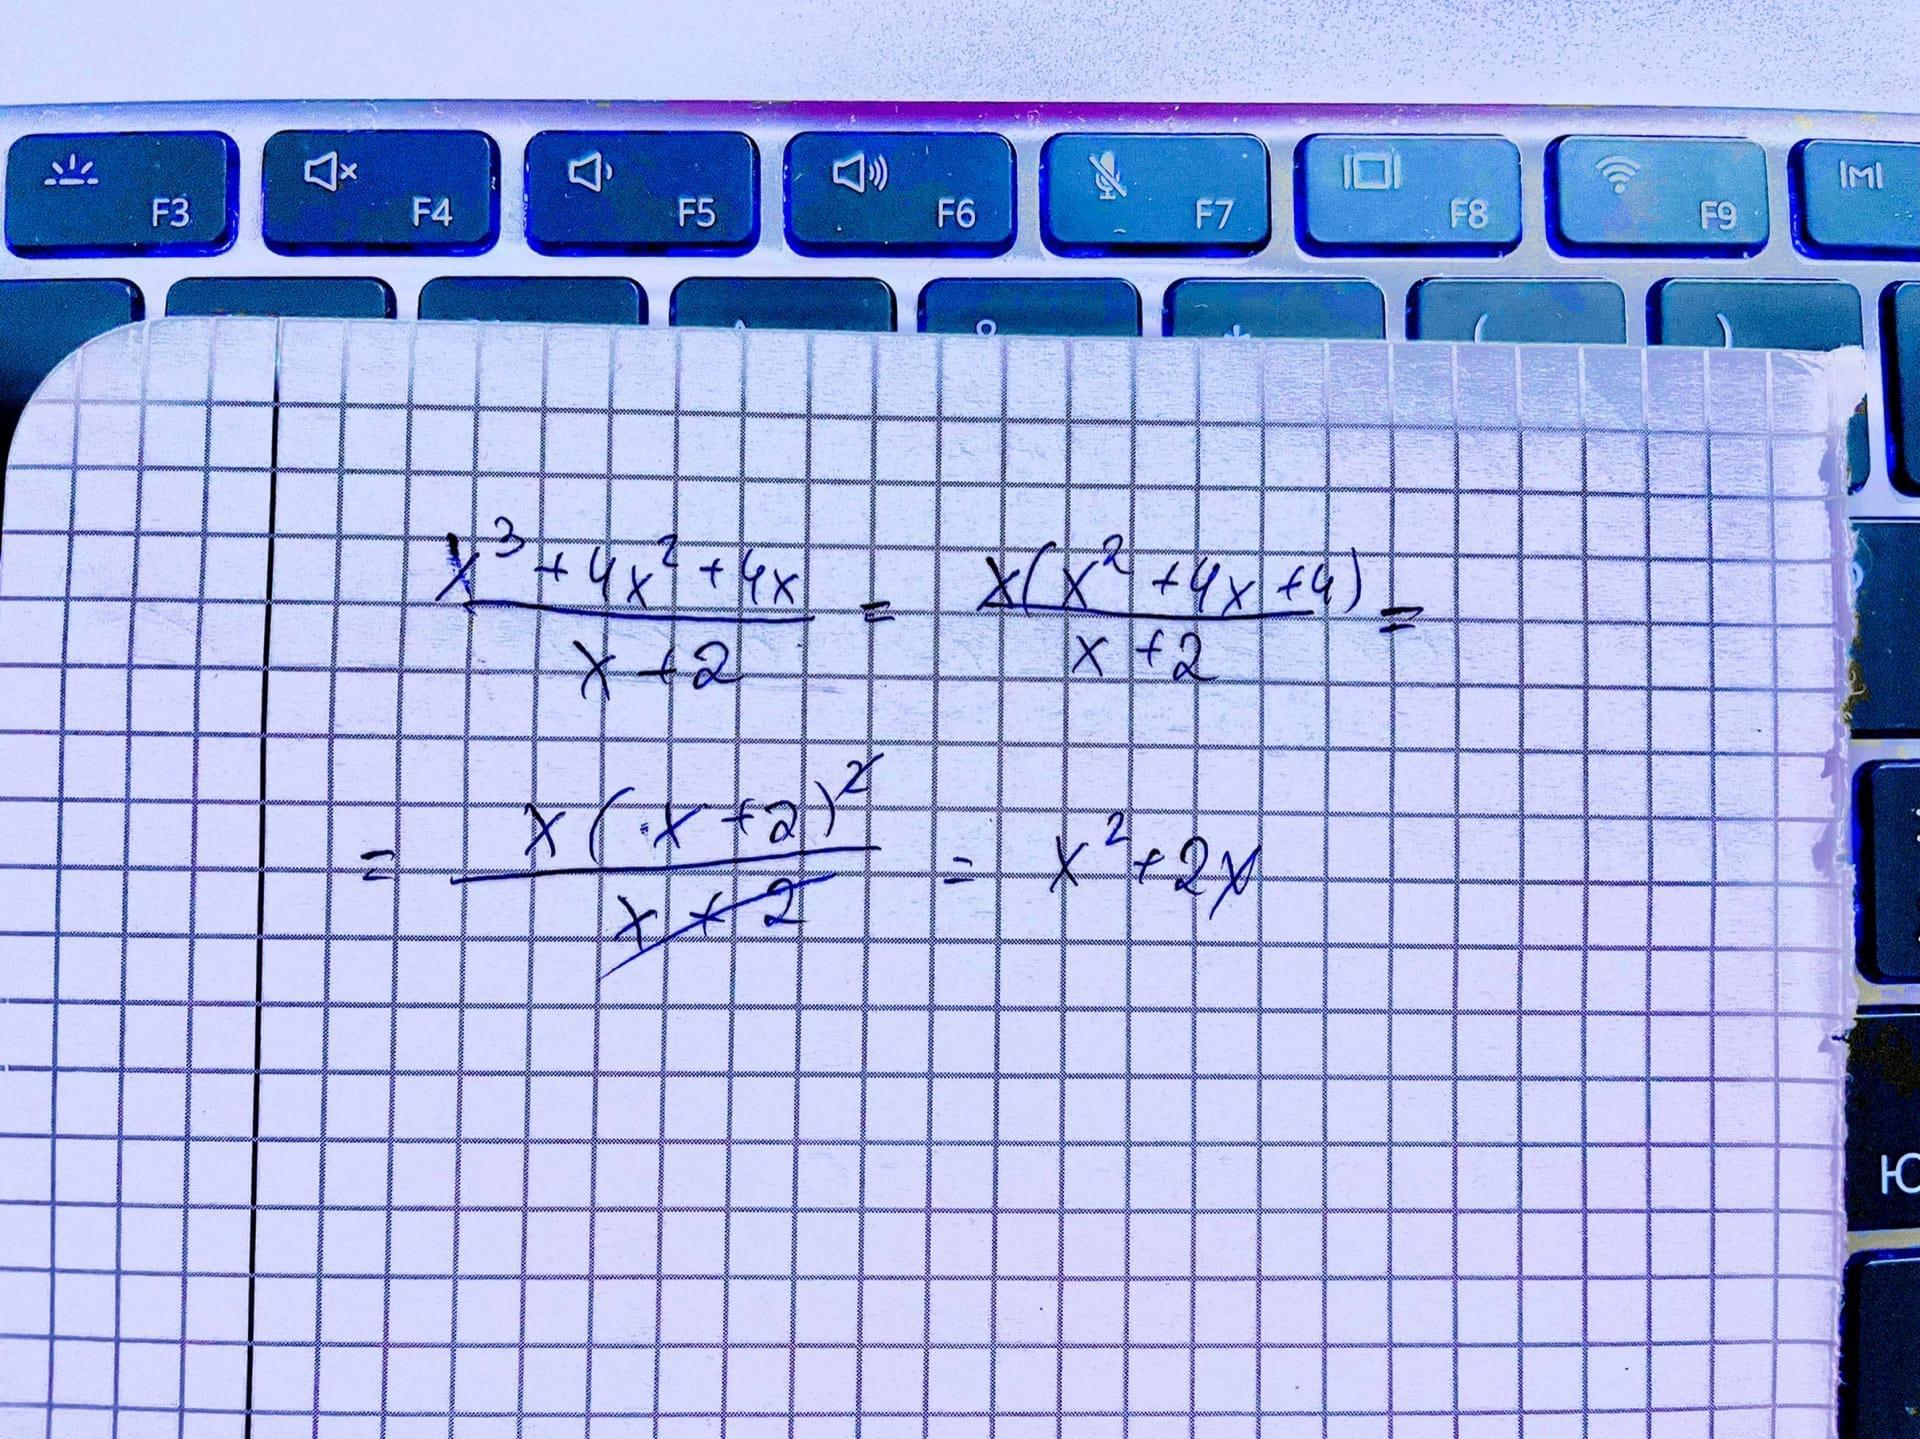 F3 F4 F5 F6 F7 F8 F9
& * ( )
x³ + 4x² + 4x / x + 2 = x(x² + 4x + 4) / x + 2 =
= x(x + 2)² / x + 2 = x² + 2x
Ю